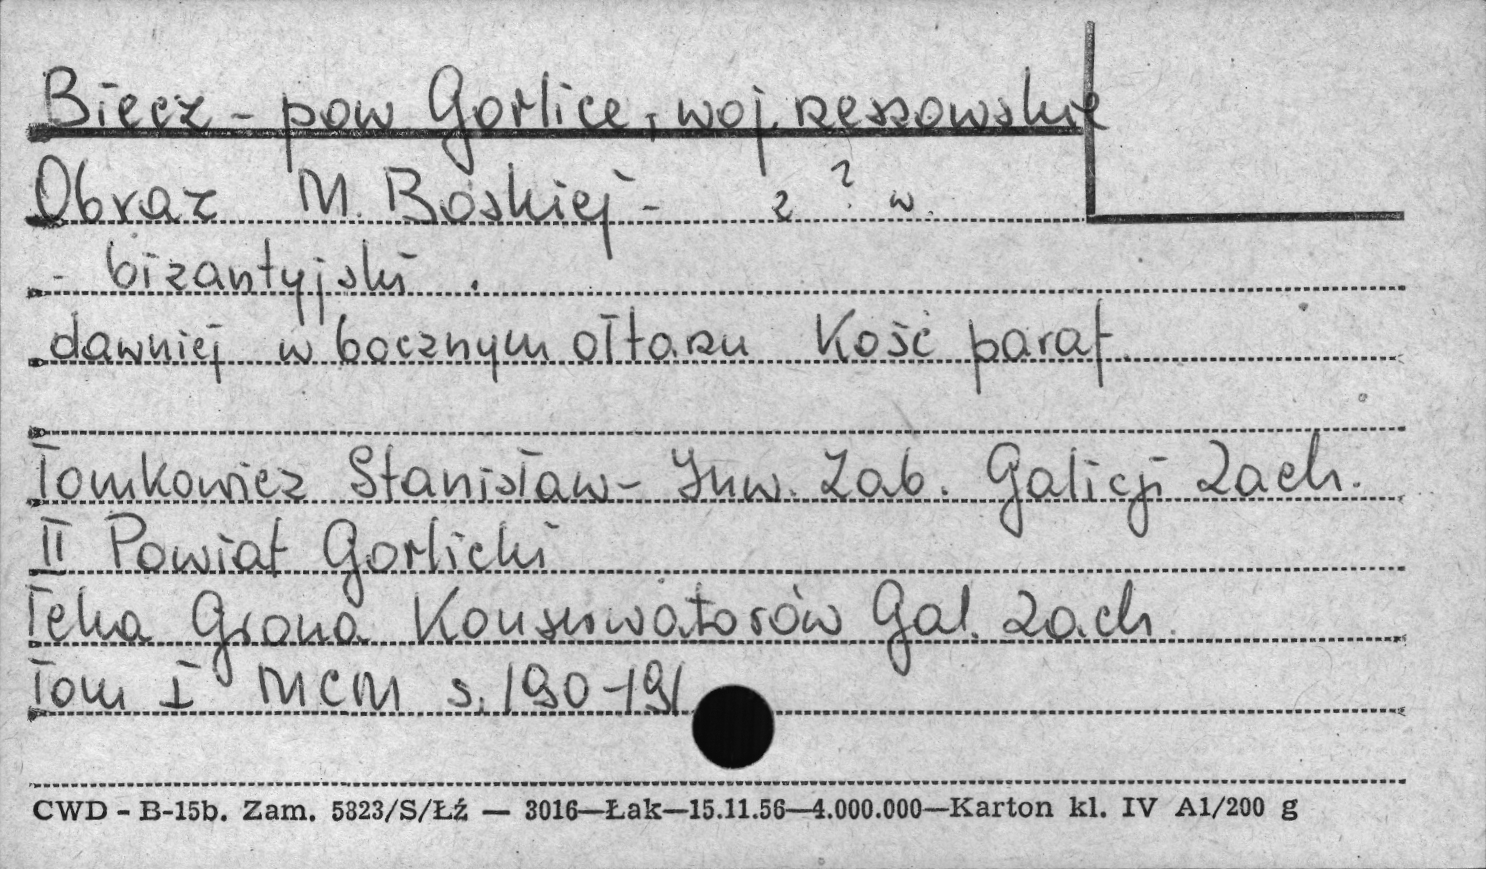 Biecz - pow Gorlice, woj. rzeszowskie
Obraz M. Boskiej - z ? w.
- bizantyjski .
dawniej w bocznym ołtarzu Kość paraf.
Tomkowicz Stanisław - Inw. Zab. Galicji Zach.
II Powiat Gorlicki
Teka Grona Konserwatorów Gal. Zach.
Tom I MCM s. 190-191
CWD - B-15b. Zam. 5823/S/Łź — 3016—Łak—15.11.56—4.000.000—Karton kl. IV A1/200 g